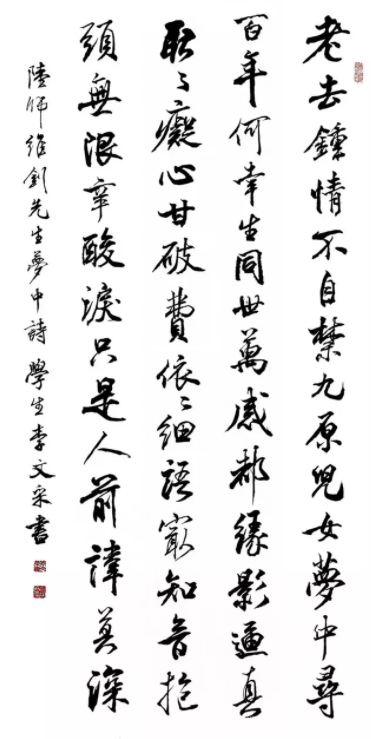 老去鍾情不自禁九原兒女夢中尋
百年何幸生同世萬感都緣影逼真
耿〻癡心甘破費依〻細語最知音抱
頭無限辛酸淚只是人前諱莫深
陸師維釗先生夢中詩 學生李文采書